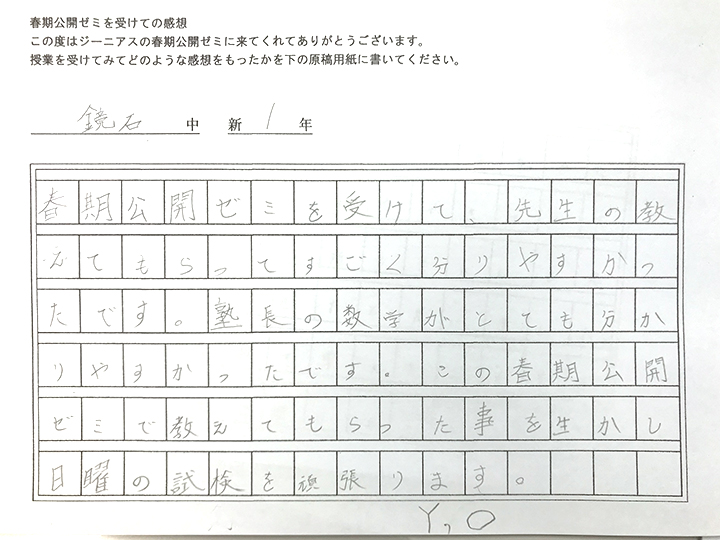 春期公開ゼミを受けての感想
この度はジーニアスの春期公開ゼミに来てくれてありがとうございます。
授業を受けてみてどのような感想をもったかを下の原稿用紙に書いてください。
鏡石 中 新 1 年
春期公開ゼミを受けて、先生の教
えてもらってすごく分りやすかっ
たです。塾長の数学がとても分か
りやすかったです。この春期公開
ゼミで教えてもらった事を生かし
日曜の試検を頑張ります。
Y,O